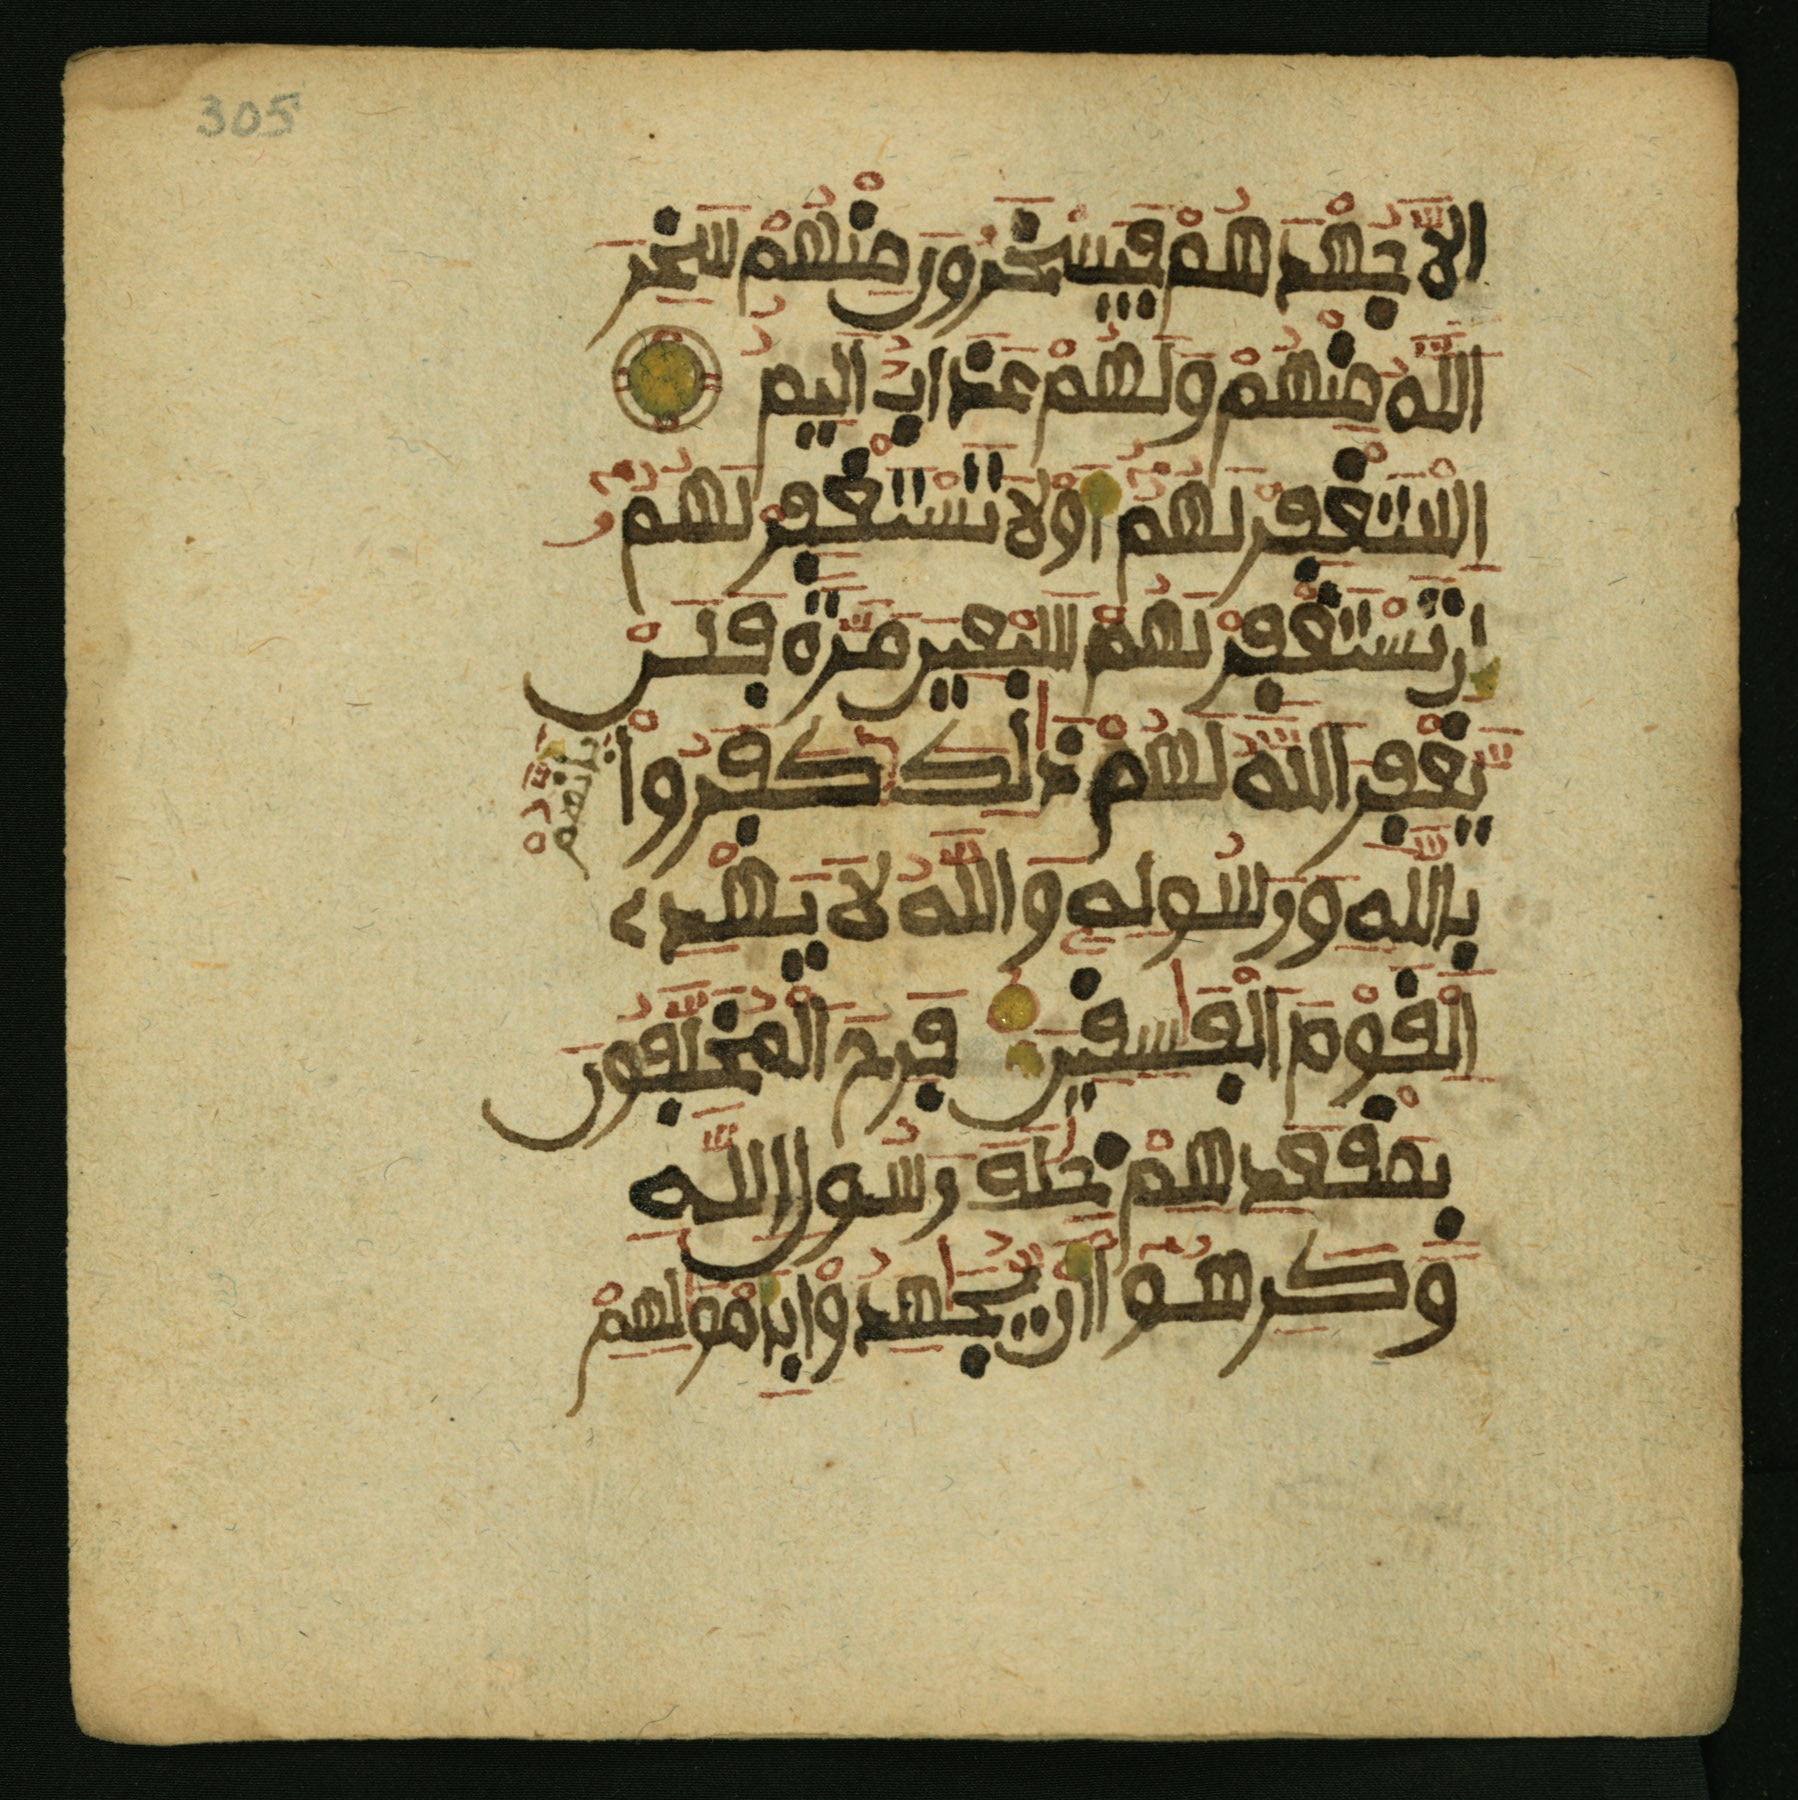 305
إلا جهدهم فيسخرون منهم سخر
الله منهم ولهم عذاب اليم
استغفر لهم أو لا تستغفر لهم
إن تستغفر لهم سبعين مرة فلن
يغفر الله لهم ذلك كفروا
بأنهم
بالله ورسوله والله لا يهدے
القوم الفسقين فرح المخلفون
بمقعدهم خلف رسول الله
وكرهوا أن يجهدوا بأمولهم